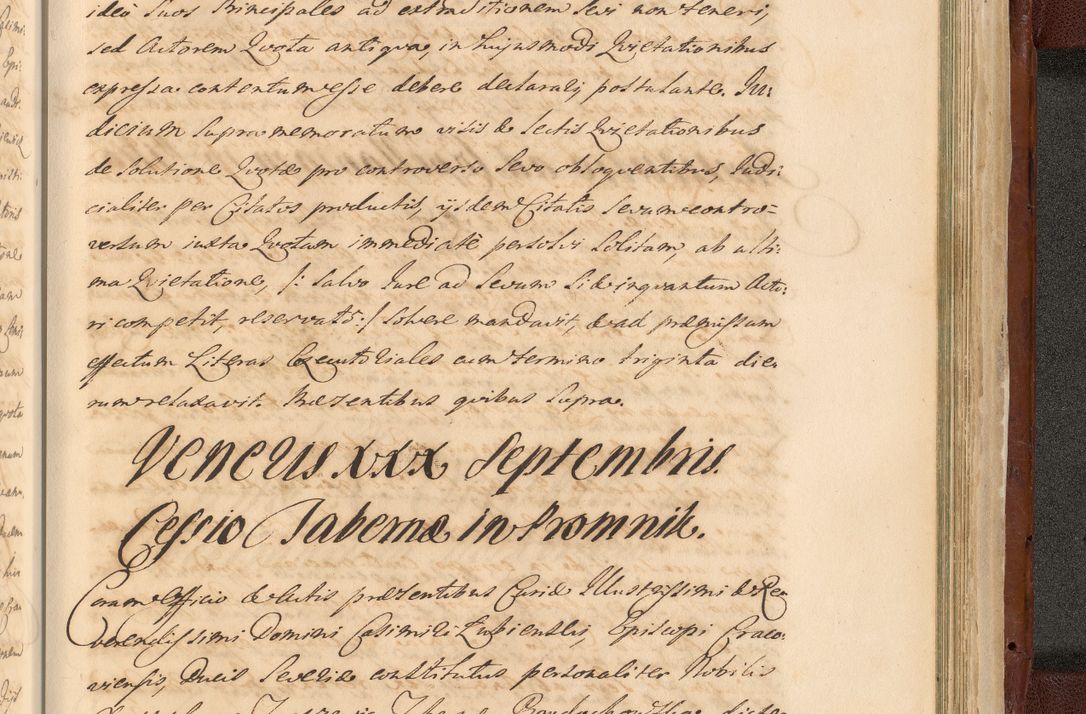 ideo suos Principales ad extraditionem sevi non teneri,
sed Actorem Quota antiqua, in hujusmodi Quietationibus
expressa contentum esse debere declarari postulante. Iu:
dicium supra memoratum visis & lectis Quietationibus
de solutione Quotæ pro controverso sevo obloquentibus, Iudi:
cialiter per Citatos productis, ijsdem Citatis sevum contro=
versum iuxta Quotam immediatè persolvi solitam, ab ulti:
ma Quietatione, /: salvo Iure ad sevum si & inquantum Acto:
ri competit, reservatô :/ solvere mandavit, & ad præmissum
effectum Literas Executoriales cum termino triginta die:
rum relaxavit. Præsentibus quibus supra.
Veneris xxx Septembris.
Cessio Tabernæ in Promnik.
Coram Officio & Actis præsentibus Curiæ Illustrissimi & Re
verendissimi Domini Casimiri Łubienski, Episcopi Craco:
viensis, Ducis Severiæ constitutus personaliter Nobilis